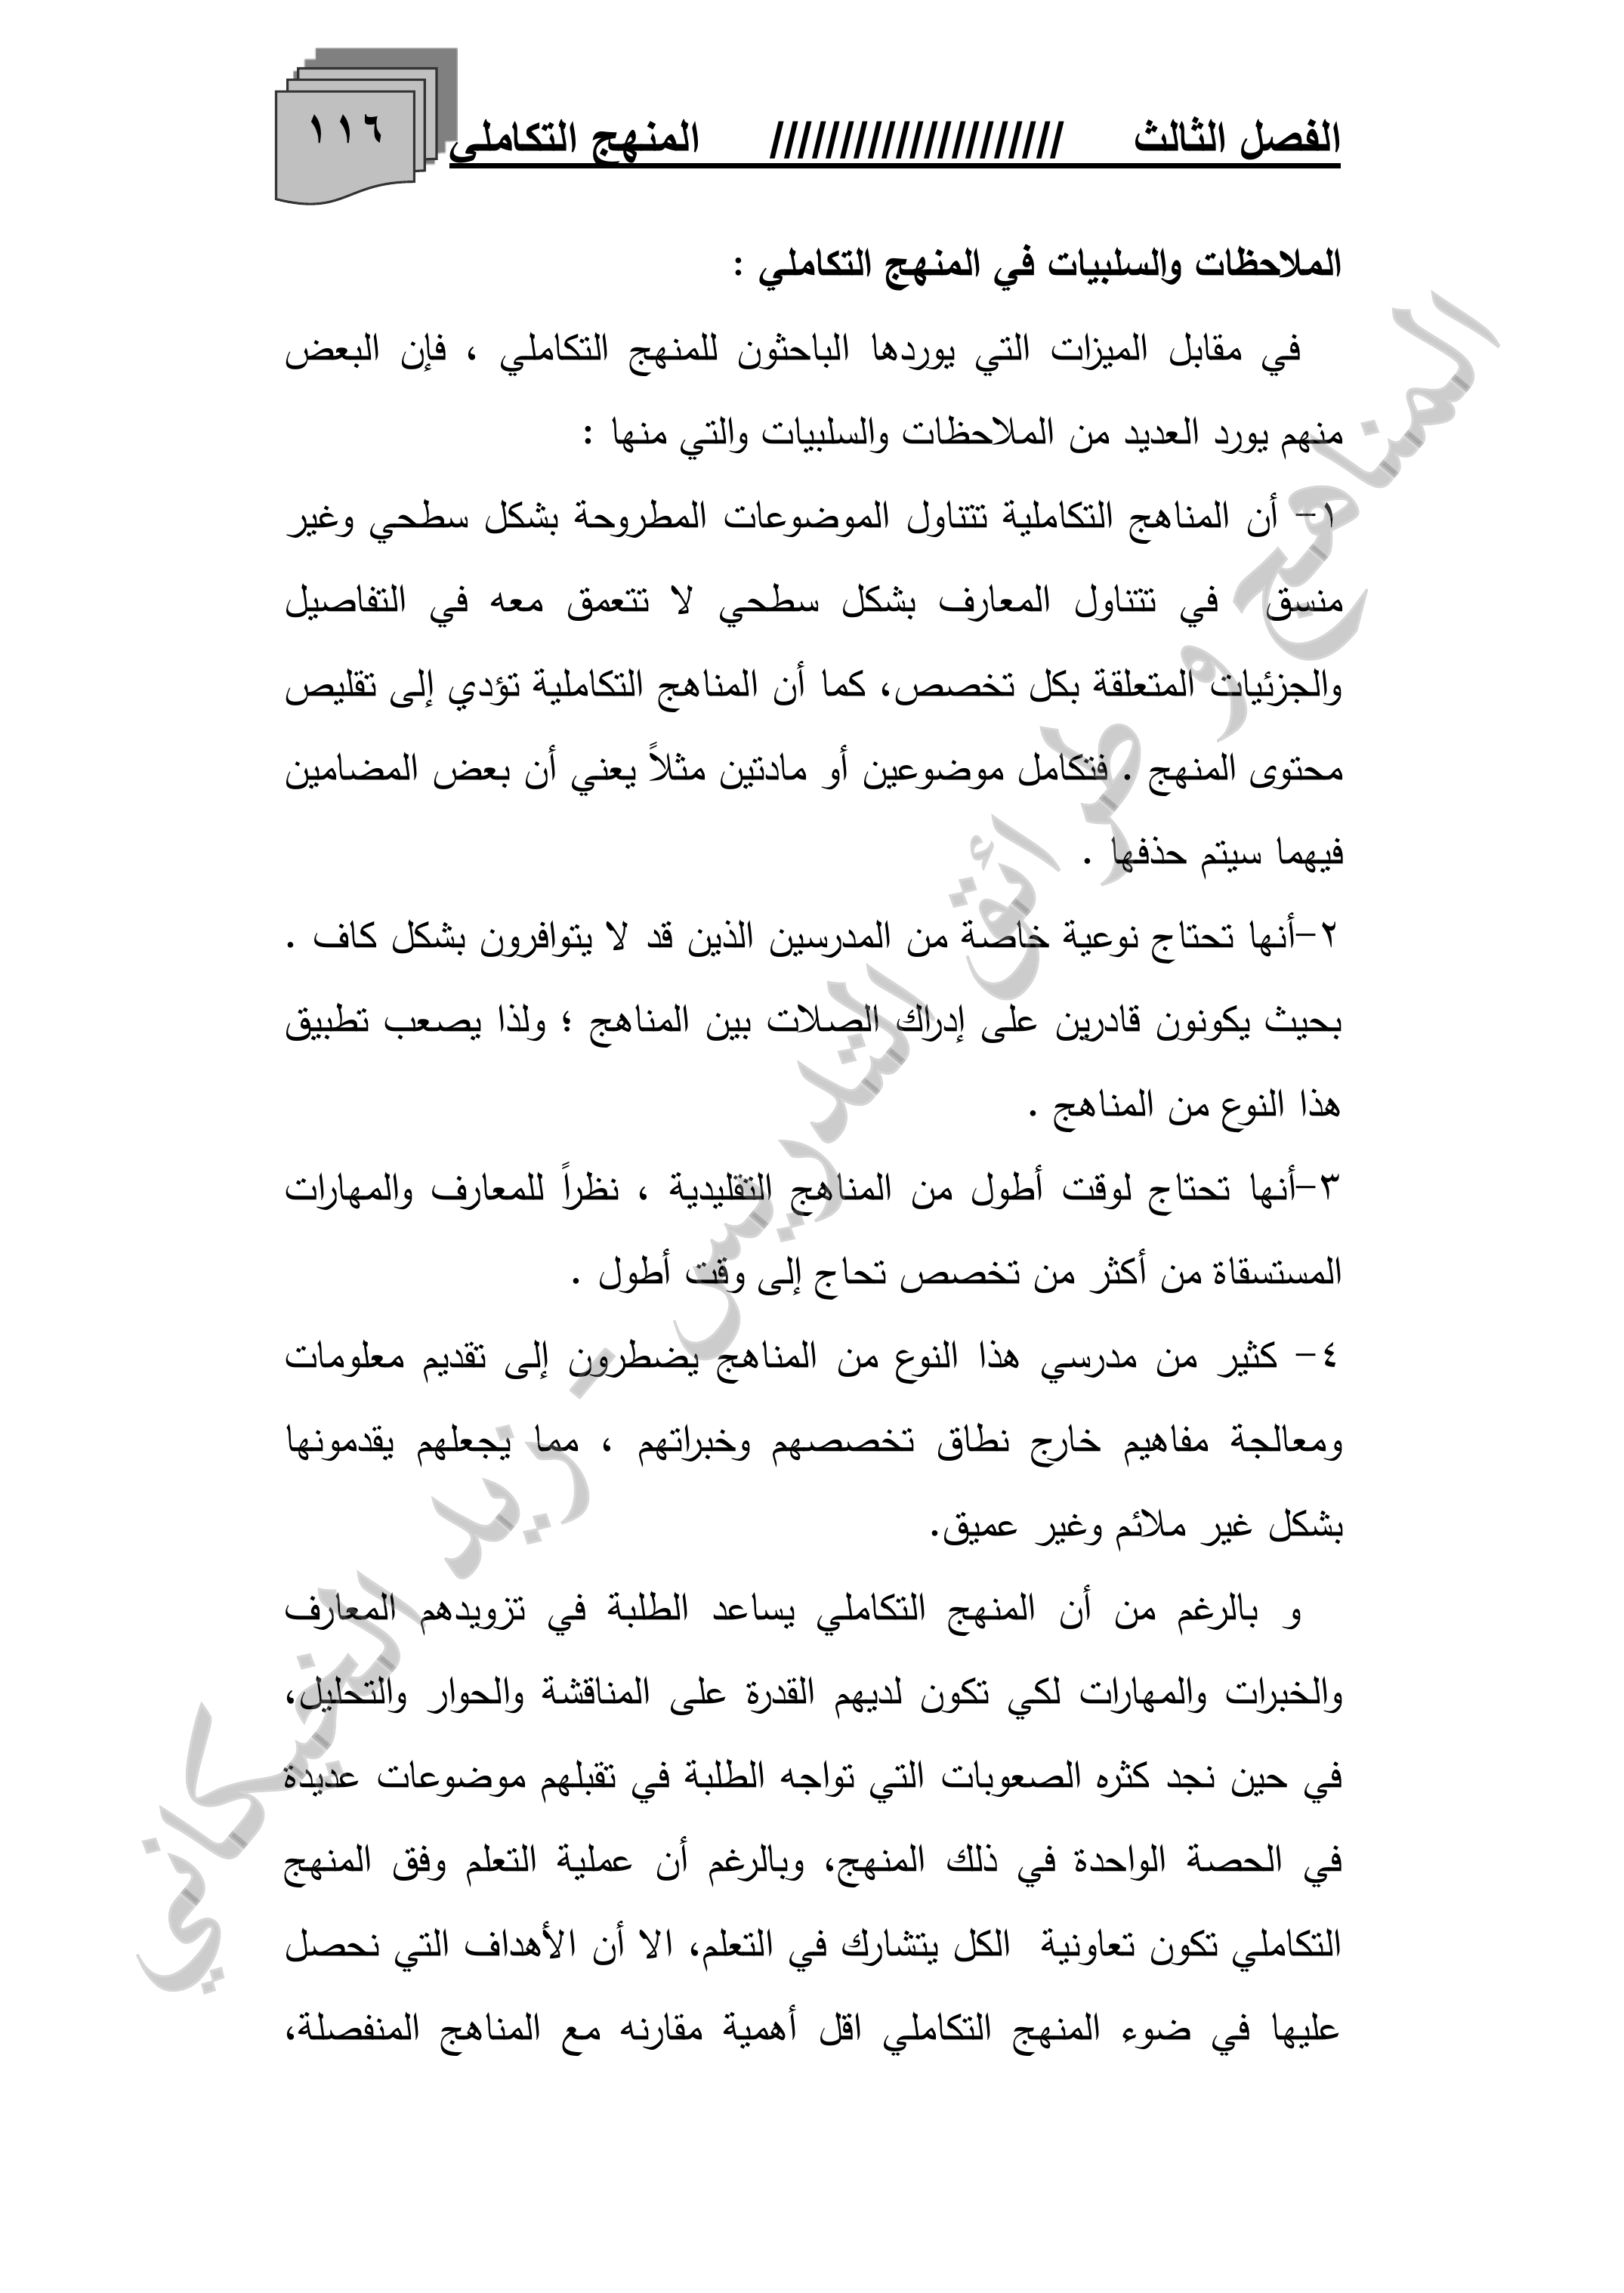 الفصل الثالث ///////////////////// المنهج التكاملي ١١٦
الملاحظات والسلبيات في المنهج التكاملي :
في مقابل الميزات التي يوردها الباحثون للمنهج التكاملي ، فإن البعض
منهم يورد العديد من الملاحظات والسلبيات والتي منها :
١- أن المناهج التكاملية تتناول الموضوعات المطروحة بشكل سطحي وغير
منسق في تتناول المعارف بشكل سطحي لا تتعمق معه في التفاصيل
والجزئيات المتعلقة بكل تخصص، كما أن المناهج التكاملية تؤدي إلى تقليص
محتوى المنهج . فتكامل موضوعين أو مادتين مثلاً يعني أن بعض المضامين
فيهما سيتم حذفها .
٢-أنها تحتاج نوعية خاصة من المدرسين الذين قد لا يتوافرون بشكل كاف .
بحيث يكونون قادرين على إدراك الصلات بين المناهج ؛ ولذا يصعب تطبيق
هذا النوع من المناهج .
٣-أنها تحتاج لوقت أطول من المناهج التقليدية ، نظراً للمعارف والمهارات
المستسقاة من أكثر من تخصص تحاج إلى وقت أطول .
٤- كثير من مدرسي هذا النوع من المناهج يضطرون إلى تقديم معلومات
ومعالجة مفاهيم خارج نطاق تخصصهم وخبراتهم ، مما يجعلهم يقدمونها
بشكل غير ملائم وغير عميق.
و بالرغم من أن المنهج التكاملي يساعد الطلبة في تزويدهم المعارف
والخبرات والمهارات لكي تكون لديهم القدرة على المناقشة والحوار والتحليل،
في حين نجد كثره الصعوبات التي تواجه الطلبة في تقبلهم موضوعات عديدة
في الحصة الواحدة في ذلك المنهج، وبالرغم أن عملية التعلم وفق المنهج
التكاملي تكون تعاونية الكل يتشارك في التعلم، الا أن الأهداف التي نحصل
عليها في ضوء المنهج التكاملي اقل أهمية مقارنه مع المناهج المنفصلة،
المناهج و طرائق التدريس - زيد الخيكاني